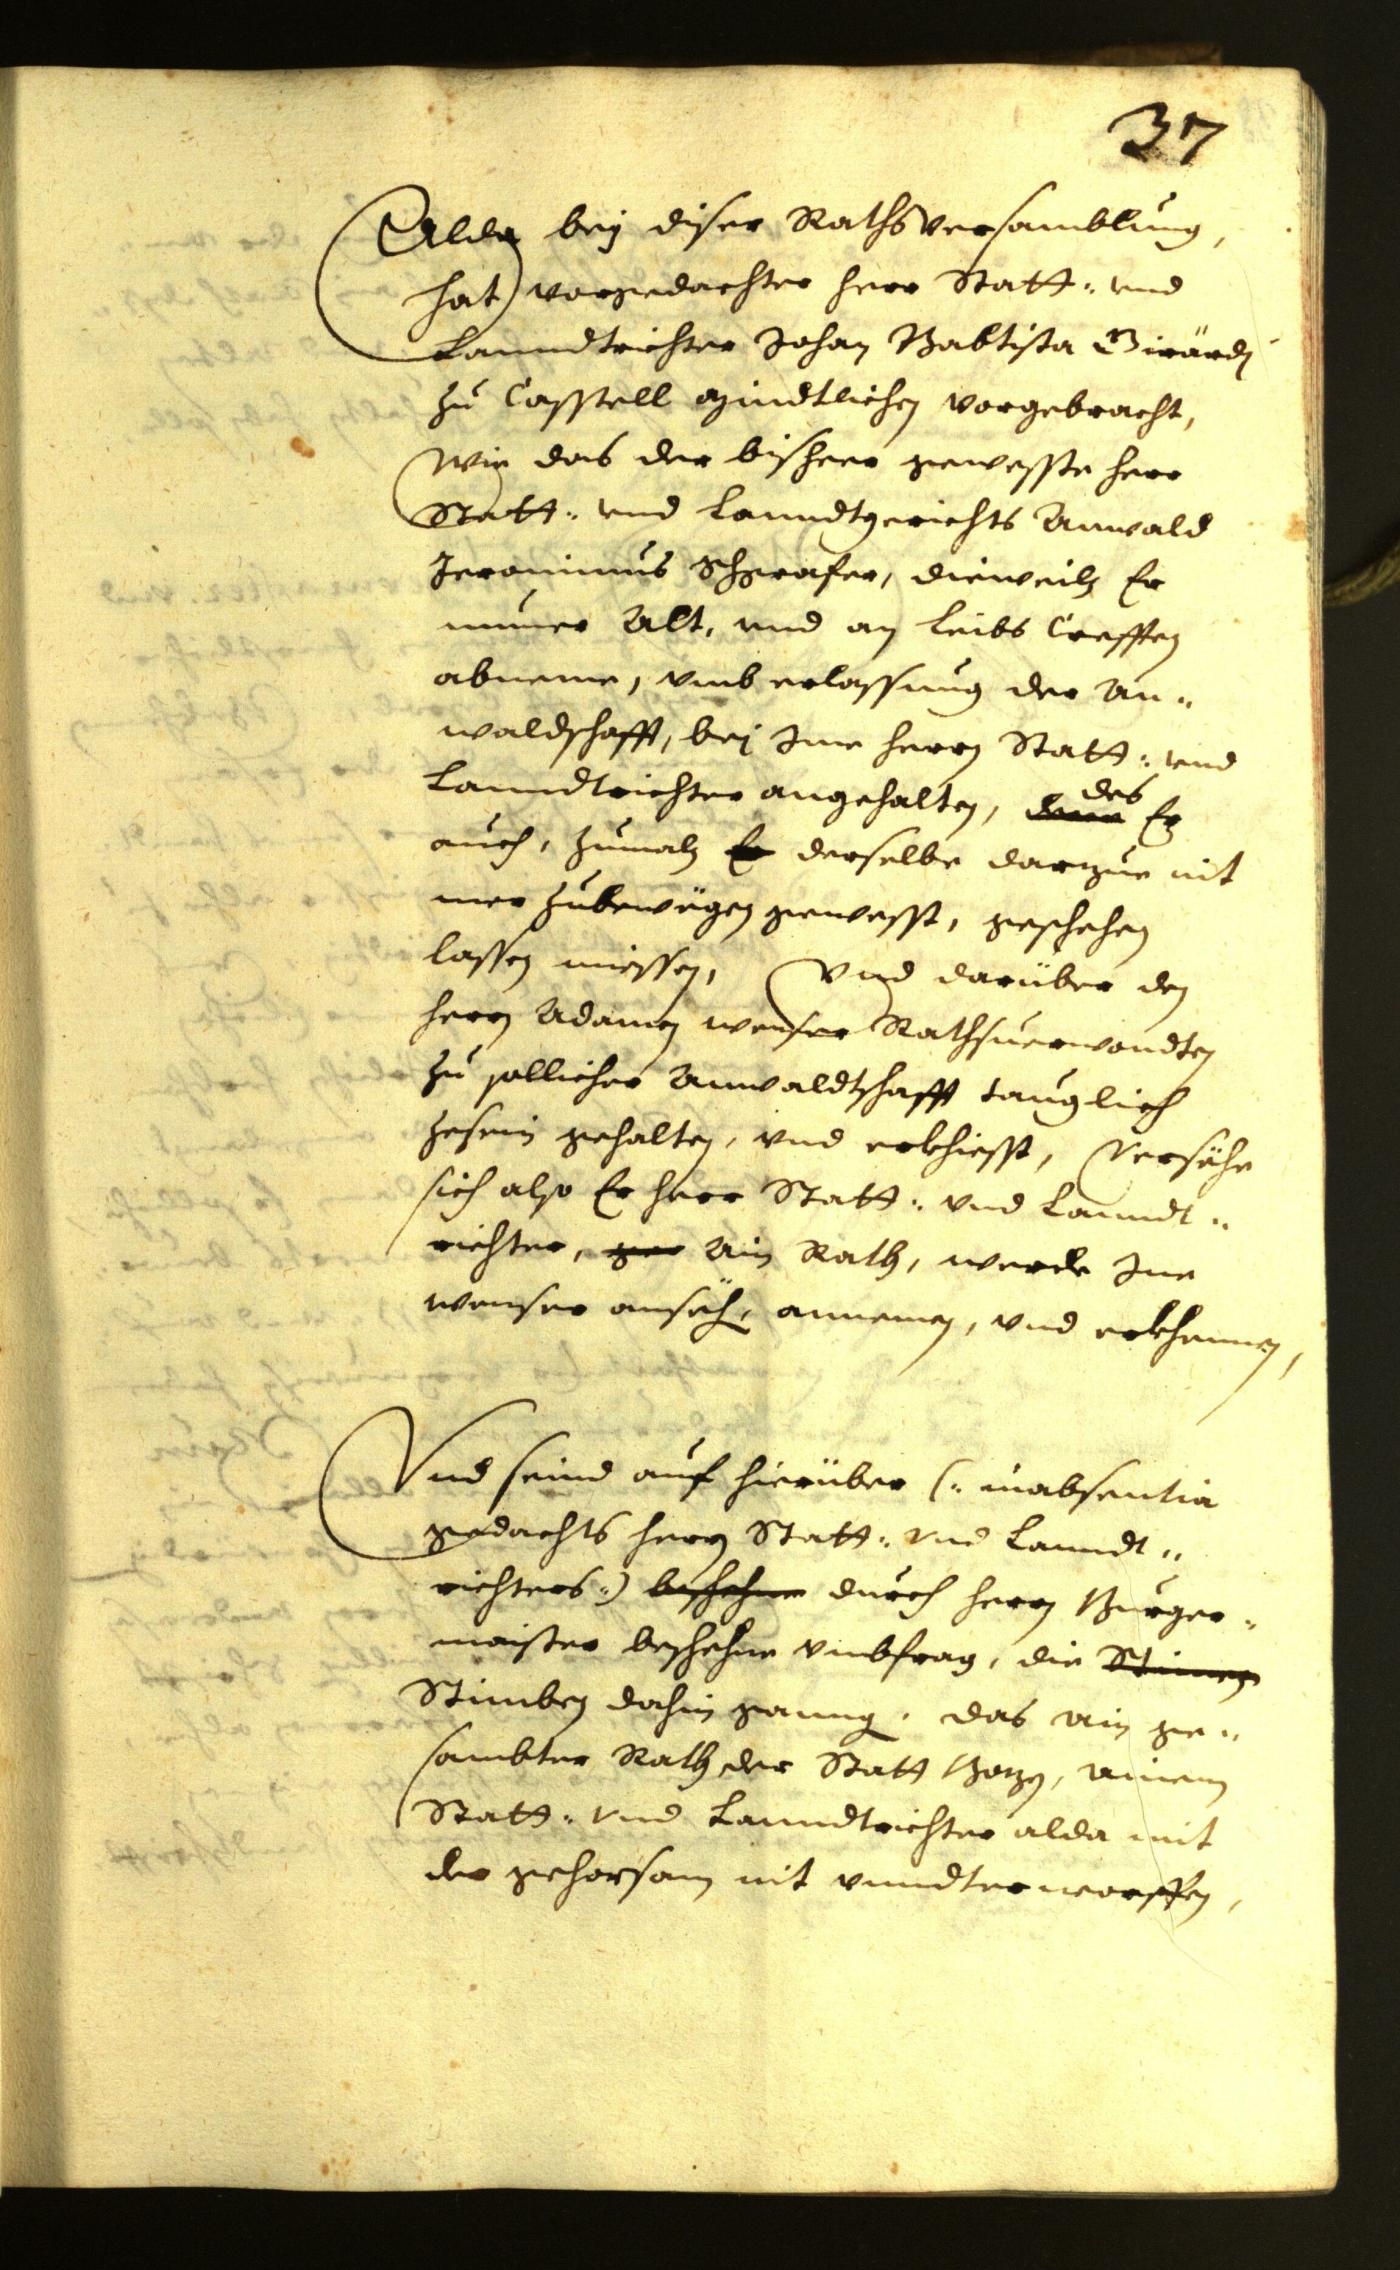 37
Alda bey diser Rathsversamblung,
hat vorgedachter herr Statt- und
Lanndtrichter Johan Babtista Girardj
zu Casstell mündtlichen vorgebracht,
Wie das der bisheer gewesste herr
Statt- und Lanndtgerichts Anwald
Jeronimus Schgrafer, dieweiln Er
nuner Alt, und an Leibs Crefften
abneme, vmb erlassung der An-
waldschafft, bej Ime herrn Statt- und
Lanndtrichter angehalten, des Er
auch, zumaln Er derselbe darzue nit
mer zubewögen gewesst, geschehen
lassen miessen, Vnd darüber den
herrn Adamen Wenser Rathsuerwandten
zu sollicher Anwaldtschafft tauglich
zesein gehalten, vnd erkhiesst, Versähe
sich also Er herr Statt- vnd Lanndt-
richter, Ain Rath, werde Ine
Wenser ansech, annemen, vnd erkhennen,
Vnd seind auf hierüber (: in absentia
gedachts herrn Statt- vnd Lanndt-
richters:) beschehne durch herrn Burger-
maister beschehne vmbfrag, die Stimen
Stimben dahin ganng, das ain ge-
sambter Rath der Statt Botzn, ainem
Statt- vnd Lanndtrichter alda mit
der gehorsam nit vnndterworffen,